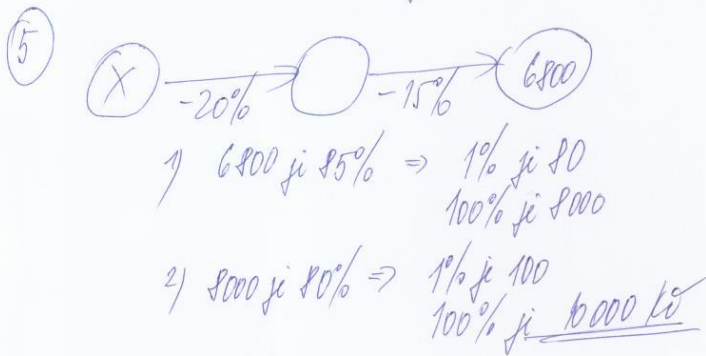 5
X -20% -15% 6800
1) 6800 je 85% => 1% je 80
100% je 8000
2) 8000 je 80% => 1% je 100
100% je 10000 Kč